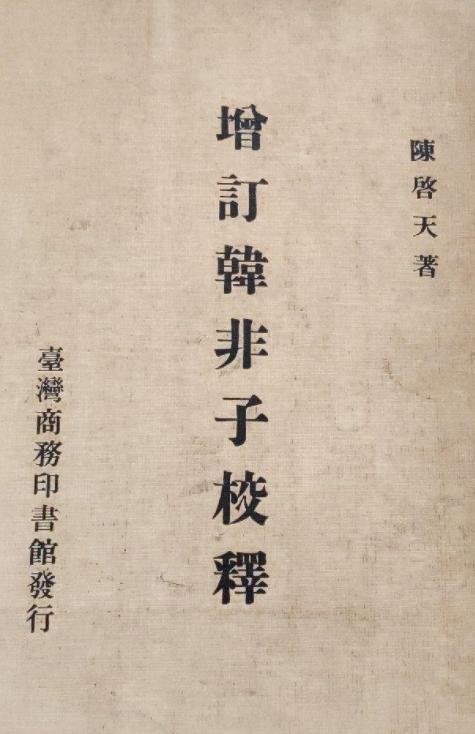 陳啓天著
增訂韓非子校釋
臺灣商務印書館發行